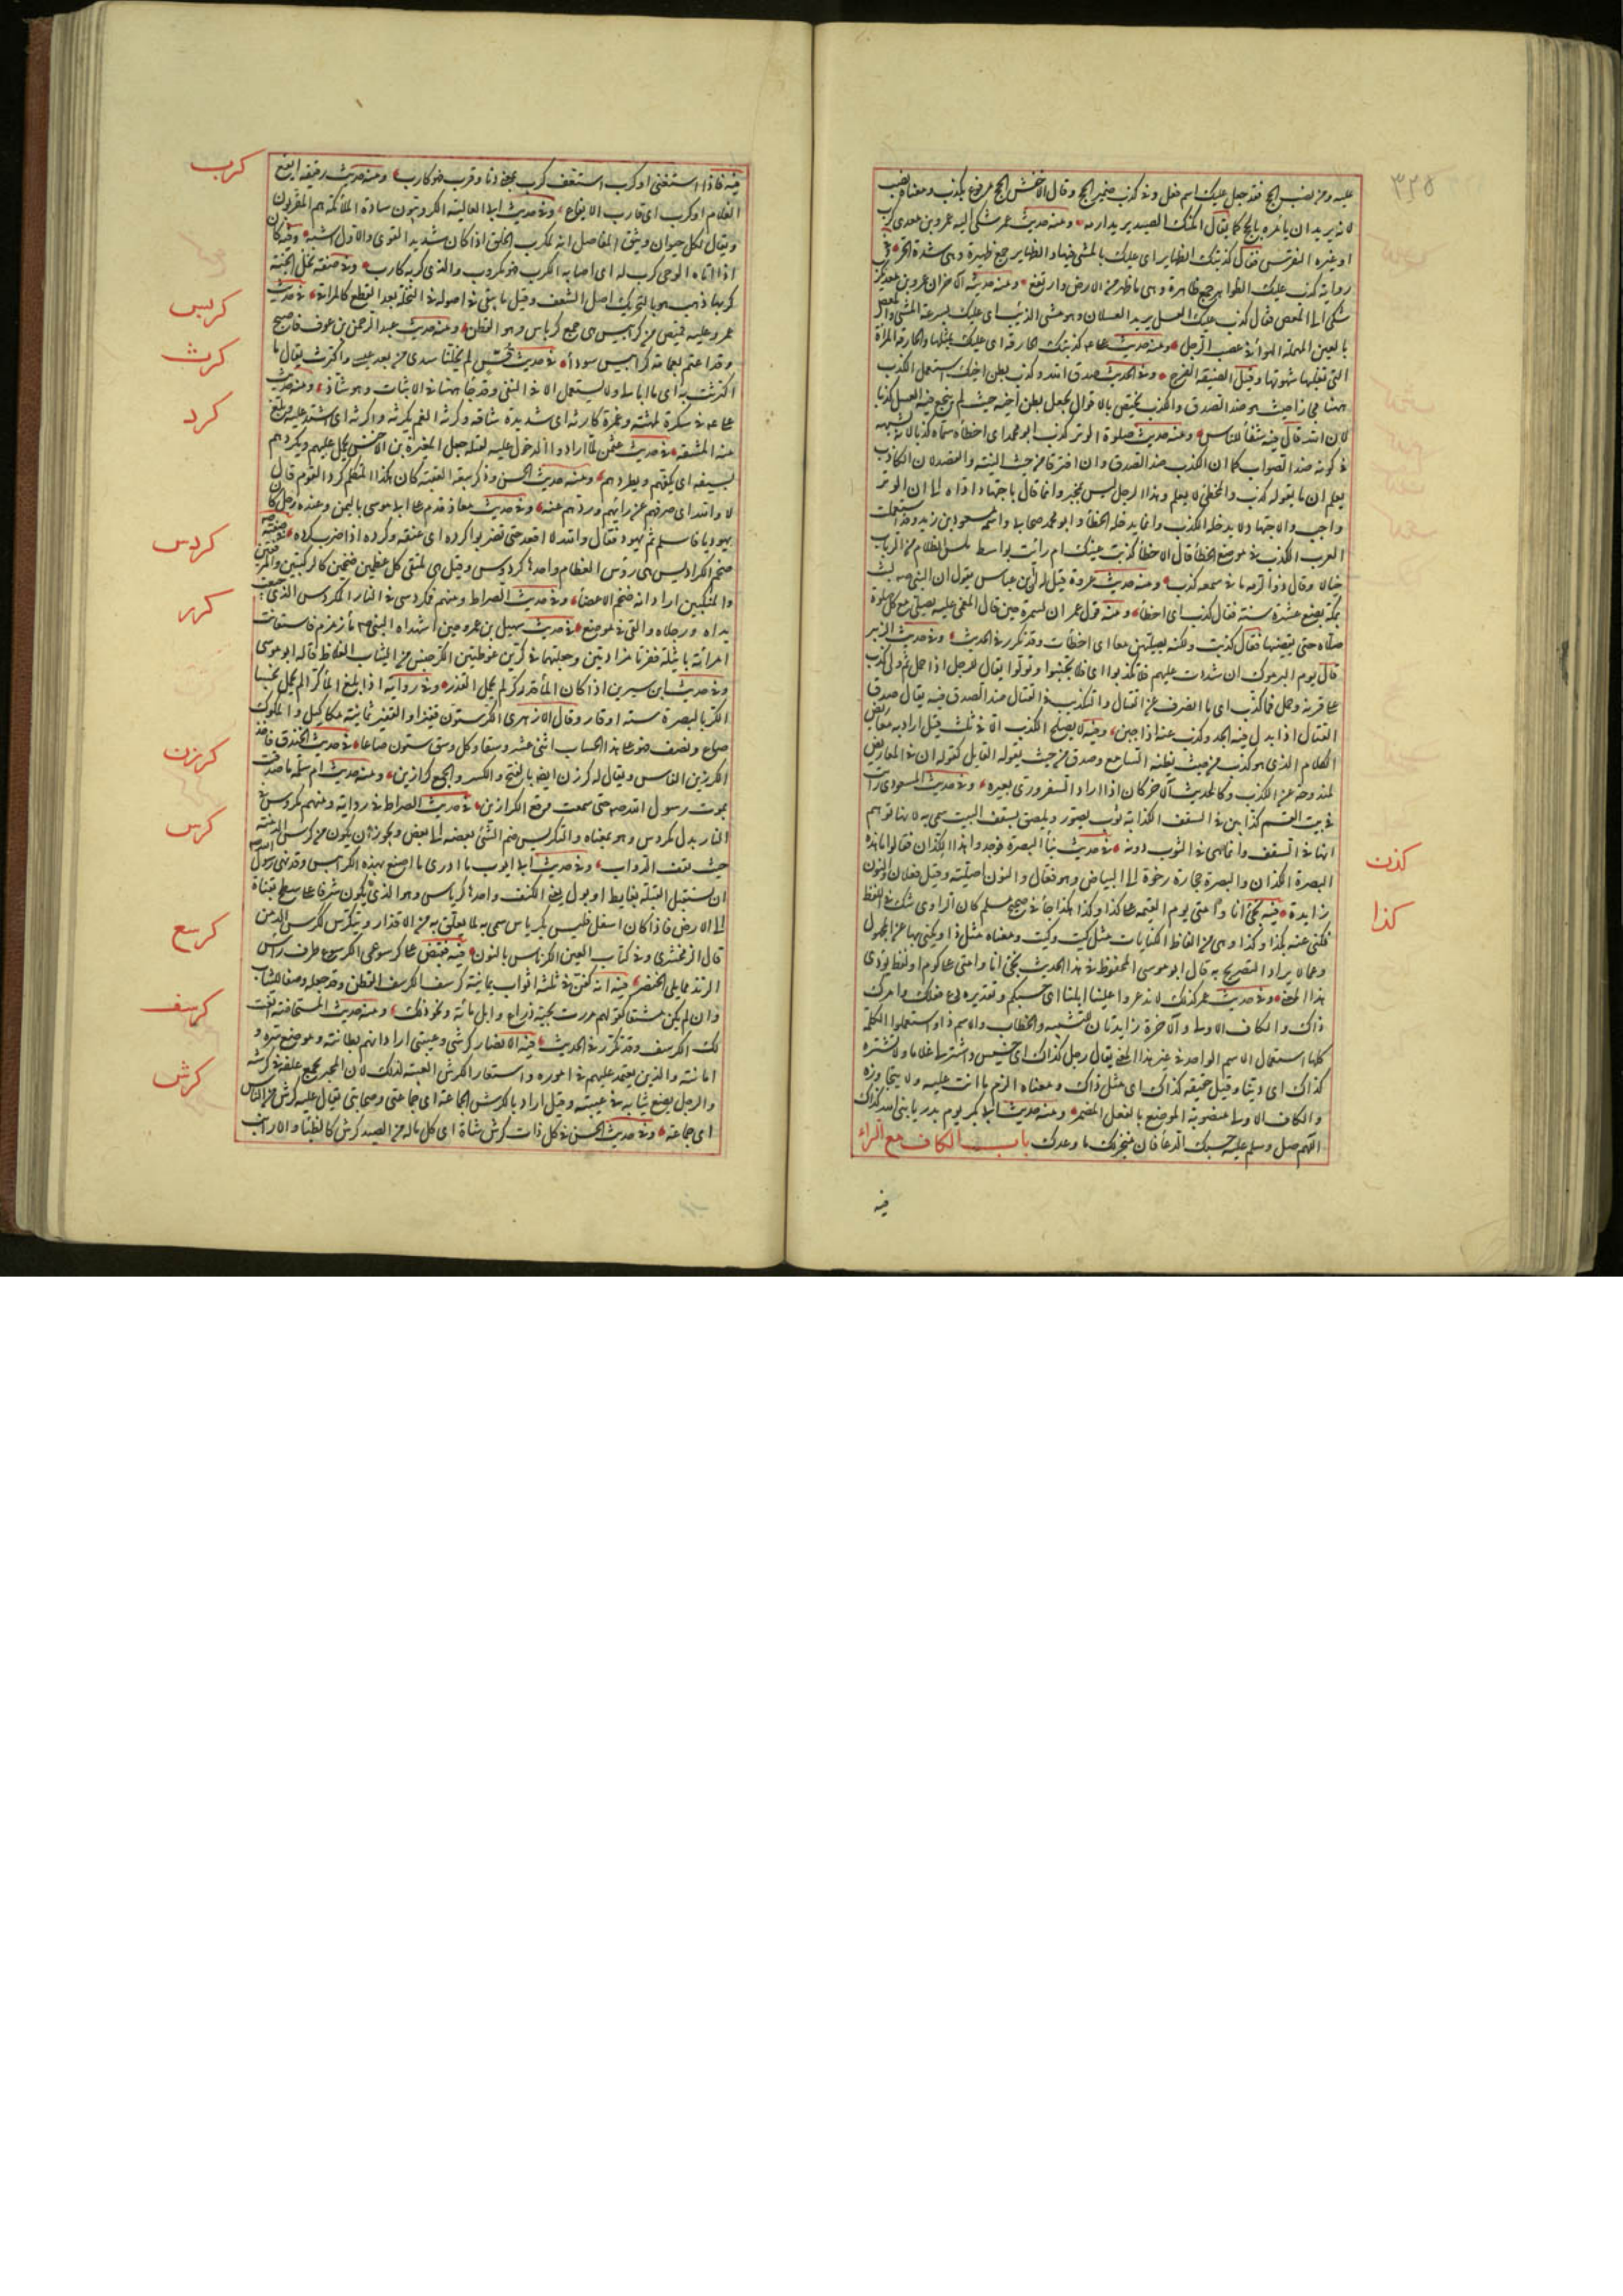 ٣٢٥
عليه ومن نصب الحج فقد جعل عليك اسم فعل وفى كذب ضمير الحج وقال الاخفش الحج مرفوع بكذب ومعناه نصب
لانه يريد ان يأمره بالحج كما يقال امكنك الصيد يريد ارمه ومنه حديث عمر شكى اليه عمرو بن معدى كرب
او غيره النقرس فقال كذبتك الظهاير اى عليك بالمشى فيها والظهاير جمع ظهيرة وهى شدة الحر وفى
رواية كذب عليك الظواهر جمع ظاهرة وهى ما ظهر من الارض وارتفع ومنه حديثه الآخر ان عمرو بن معديكرب
شكى اليه المعص فقال كذب عليك العسل يريد العسلان وهو مشى الذئب اى عليك بسرعة المشى والمعص
بالعين المهملة التواء فى عصب الرجل ومنه حديث على كذبتك الحارقة اى عليك بمثلها والحارقة المرأة
التى تغلبها شهوتها وقيل الضيقة الفرج وفى الحديث صدق الله وكذب بطن اخيك استعمل الكذب
ههنا مجازا حيث هو ضد الصدق والكذب يختص بالاقوال فجعل بطن اخيه حيث لم ينجع فيه العسل كذبا
لان الله قال فيه شفاء للناس ومنه حديث صلوة الوتر كذب ابو محمد اى اخطأ سماه كذبا لانه يشبهه
فى كونه ضد الصواب كما ان الكذب ضد الصدق وان افترقا من حيث النية والقصد لان الكاذب
يعلم ان ما يقوله كذب والمخطئ لا يعلم وهذا الرجل ليس بمخبر وانما قال باجتهاد اداه الى ان الوتر
واجب والاجتهاد لا يدخله الكذب وانما يدخله الخطأ وابو محمد صحابى واسمه مسعود بن زيد وقد استعملت
العرب الكذب فى موضع الخطأ قال الاخطل كذبتك عينك ام رأيت بواسط غلس الظلام من الرباب
خيالا وقال ذو الرمة ما فى سمعه كذب ومنه حديث عروة قيل له ان ابن عباس يقول ان النبى صم لبث
بمكة بضع عشرة سنة فقال كذب اى اخطأ ومنه قول عمر ان لسمرة حين قال المغمى عليه يصلى مع كل صلوة
صلاة حتى يقضيها فقال كذبت ولكنه يصليهن معا اى اخطأت وقد تكرر فى الحديث وفى حديث الزبير
قال يوم اليرموك ان شددت عليهم فلا تكذبوا اى فلا تجبنوا وتولوا يقال للرجل اذا حمل ثم ولى كذب
عن قرنه وحمل فما كذب اى ما انصرف عن القتال والتكذيب فى القتال ضد الصدق فيه يقال صدق
القتال اذا بذل فيه الجد وكذب عنه اذا جبن وفيه لا يصلح الكذب الا فى ثلث قيل اراد به معاريض
الكلام الذى هو كذب من حيث يظنه السامع وصدق من حيث يقوله القايل كقوله ان فى المعاريض
لمندوحة عن الكذب وكالحديث الآخر كان اذا اراد السفر ورى بغيره وفى حديث المسعودى رأيت
فى بيت القسم كذابين فى السقف الكذابة ثوب يصور ويلصق بسقف البيت سمى به لانها توهم
انها فى السقف وانما هى فى الثوب دونه فى حديث بناء البصرة فوجدوا هذا الكذان فقالوا ما هذه
البصرة الكذان والبصرة حجارة رخوة الى البياض وهو فعال والنون اصلية وقيل فعلان والنون
زايدة فيه نجئ انا وامتى يوم القيمة على كذا وكذا هكذا جاء فى صحيح مسلم كان الراوى شك فى اللفظ
فكنى عنه بكذا وكذا وهى من الفاظ الكنايات مثل كيت وكيت ومعناه مثل ذا ويكنى بها عن المجهول
وعما لا يراد التصريح به قال ابو موسى المحفوظ فى هذا الحديث نجئ انا وامتى على كوم او لفظ يؤدى
هذا المعنى وفى حديث عمر كذاك لا تذعروا علينا ابلنا اى حسبكم وتقديره دع فعلك وامرك
ذاك والكاف الاولى والآخرة زايدتان للتشبيه والخطاب والاسم ذا واستعملوا الكلمة
كلها استعمال الاسم الواحد فى غير هذا المعنى يقال رجل كذاك اى خسيس واشتر لى غلاما ولا تشتره
كذاك اى دنيا وقيل حقيقة كذاك اى مثل ذاك ومعناه الزم ما انت عليه ولا تتجاوزه
والكاف الاولى منصوبة الموضع بالفعل المضمر ومنه حديث ابى بكر يوم بدر يا نبى الله كذاك
اللهم صل وسلم عليه حسبك الدعاء فان الله منجز لك ما وعدك باب الكاف مع الراء
كذن
كذا
فيه
فيه فاذا استغنى او كرب استعفف كرب بمعنى دنا وقرب فهو كارب ومنه حديث رقيقة ايفع
الغلام او كرب اى قارب الايفاع وفى حديث ابى العالية الكروبيون سادة الملائكة هم المقربون
ويقال لكل حيوان وثيق المفاصل انه لمكرب الخلق اذا كان شديد القوى والاول اشبه وفيه كان
اذا اتاه الوحى كرب له اى اصابه الكرب فهو مكروب والذى كربه كارب وفى صفة نخل الجنة
كربها ذهب هو بالتحريك اصل السعف وقيل ما يبقى من اصوله فى النخلة بعد القطع كالمراقى فى حديث
عمر وعليه قميص من كرابيس هى جمع كرباس وهو القطن ومنه حديث عبد الرحمن بن عوف فاصبح
وقد اعتم بعمامة كرابيس سوداء فى حديث قس لم يخلنا سدى من بعد عيسى واكترث يقال ما
اكترثت به اى ما ابالى ولا يستعمل الا فى النفى وقد جاء ههنا فى الاثبات وهو شاذ ومنه حديث
على فى سكرة ملهثة وغمرة كارثة اى شديدة شاقة وكرثه الغم يكرثه واكرثه اى اشتد عليه وبلغ
منه المشقة فى حديث عثمن لما ارادوا الدخول عليه لقتله جعل المغيرة بن الاخنس يحمل عليهم ويكردهم
بسيفه اى يكفهم ويطردهم ومنه حديث الحسن وذكر بيعة العقبة كان هذا المتكلم كرد القوم قال
لا والله اى صرفهم عن رايهم وردهم عنه وفى حديث معاذ قدم على ابى موسى باليمن وعنده رجل كان
يهوديا فاسلم ثم تهود فقال والله لا اقعد حتى تضربوا كرده اى عنقه وكرده اذا ضرب كرده فى صفته صم
ضخم الكراديس هى رؤس العظام واحدها كردوس وقيل هى ملتقى كل عظمين ضخمين كالركبتين والمرفقين
والمنكبين اراد انه ضخم الاعضاء وفى حديث الصراط ومنهم مكردس فى النار المكردس الذى جمعت
يداه ورجلاه والقى فى موضع فى حديث سهيل بن عمرو حين استهداه النبى صم ماء زمزم فاستعانت
امرأته باثيلة ففرتا مزادتين وجعلتهما فى كرين غوطيين الكر جنس من الثياب الغلاظ قاله ابو موسى
وفى حديث ابن سيرين اذا كان الماء قدر كر لم يحمل القذر وفى رواية اذا بلغ الماء كرا لم يحمل نجسا
الكر بالبصرة ستة اوقار وقال الازهرى الكر ستون قفيزا والقفيز ثمانية مكاكيل والمكوك
صاع ونصف فهو على هذا الحساب اثنى عشر وسقا وكل وسق ستون صاعا فى حديث الخندق فاخذ
الكرزين الفاس ويقال له كرزن ايضا بالفتح والكسر والجمع كرازين ومنه حديث ام سلمة ما صدقت
بموت رسول الله صم حتى سمعت وقع الكرازين فى حديث الصراط فى رواية ومنهم مكروس فى
النار بدل مكردس وهو بمعناه والتكريس ضم الشئ بعضه الى بعض ويجوز ان يكون من كرس الدمنة
حيث تقف الدواب وفى حديث ابى ايوب ما ادرى ما اصنع بهذه الكراييس وقد نهى رسول الله صم
ان نستقبل القبلة بغايط او بول يعنى الكنف واحدها كرياس وهو الذى يكون مشرفا على سطح بقناة
الى الارض فاذا كان اسفل فليس بكرياس سمى به لما يعلق به من الاقذار ويتكرس ككرس الدمن
قال الزمخشرى وفى كتاب العين الكرناس بالنون فيه فقبض على كرسوعى الكرسوع طرف راس
الزند مما يلى الخنصر فيه انه كفن فى ثلثة اثواب يمانية كرسف الكرسف القطن وقد جعله وصفا للثياب
وان لم يكن مشتقا كقولهم مررت بحية ذراع وابل مائة ونحو ذلك ومنه حديث المستحاضة انعت
لك الكرسف وقد تكرر فى الحديث فيه الانصار كرشى وعيبتى اراد انهم بطانته وموضع سره و
امانته والذين يعتمد عليهم فى اموره واستعار الكرش والعيبة لذلك لان المجتر يجمع علفه فى كرشه
والرجل يضع ثيابه فى عيبته وقيل اراد بالكرش الجماعة اى جماعتى وصحابتى يقال عليه كرش من الناس
اى جماعة وفى حديث الحسن فى كل ذات كرش شاة اى كل ماله من الصيد كرش كالظباء والارانب
كرب
كربس
كرث
كرد
كردس
كرر
كرزن
كرس
كرسع
كرسف
كرش